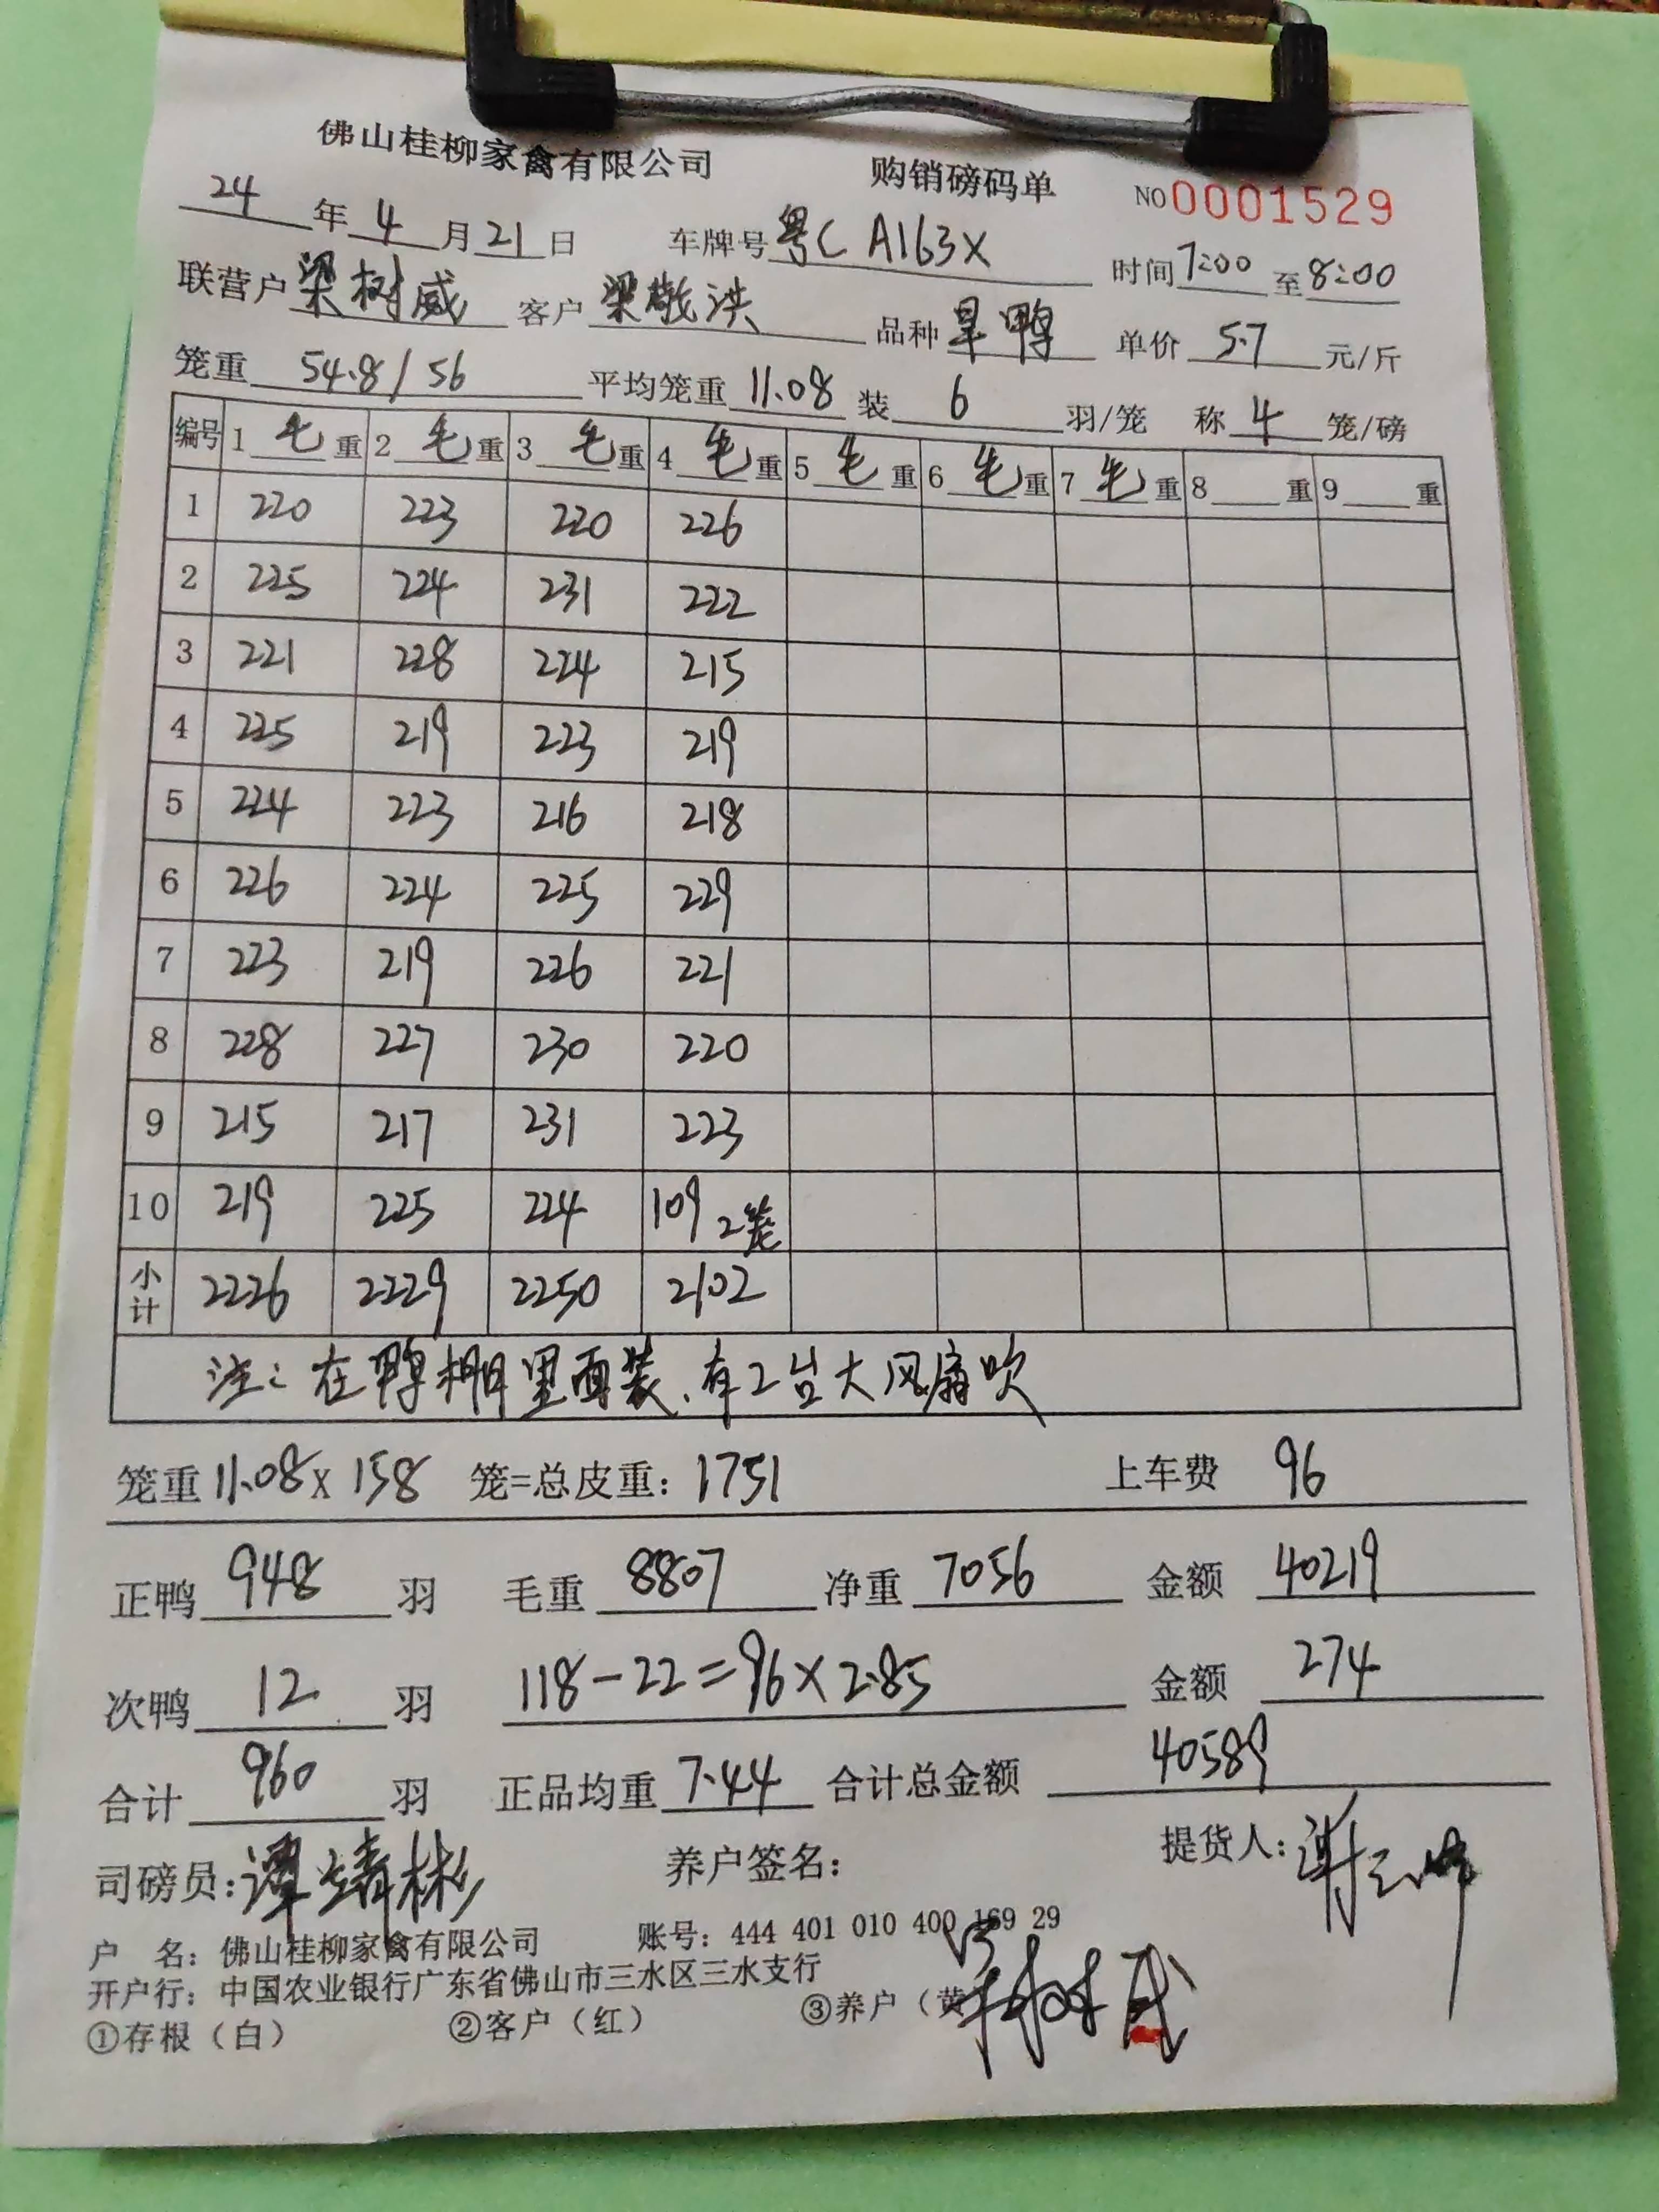 佛山桂柳家禽有限公司 购销磅码单 NO 0001529
24年4月21日 车牌号粤C A163X 时间7:00至8:00
联营户梁树威 客户梁敬洪 品种旱鸭 单价5.7元/斤
笼重54.8/56 平均笼重11.08装6羽/笼 称4笼/磅
编号 1毛重 2毛重 3毛重 4毛重 5毛重 6毛重 7毛重 8重 9重
1 220 223 220 226
2 225 224 231 222
3 221 228 224 215
4 225 219 223 219
5 224 223 216 218
6 226 224 225 229
7 223 219 226 221
8 228 227 230 220
9 215 217 231 223
10 219 225 224 109 2笼
小计 2226 2229 2250 2102
注:在鸭棚里面装、有2台大风扇吹
笼重11.08×158 笼=总皮重:1751 上车费 96
正鸭948羽 毛重8807 净重7056 金额40219
次鸭12羽 118-22=96×2.85 金额274
合计960羽 正品均重7.44 合计总金额40589
司磅员:谭靖彬 养户签名: 提货人:
户 名:佛山桂柳家禽有限公司 账号:444 401 010 400 169 29
开户行:中国农业银行广东省佛山市三水区三水支行
①存根(白) ②客户(红) ③养户(黄